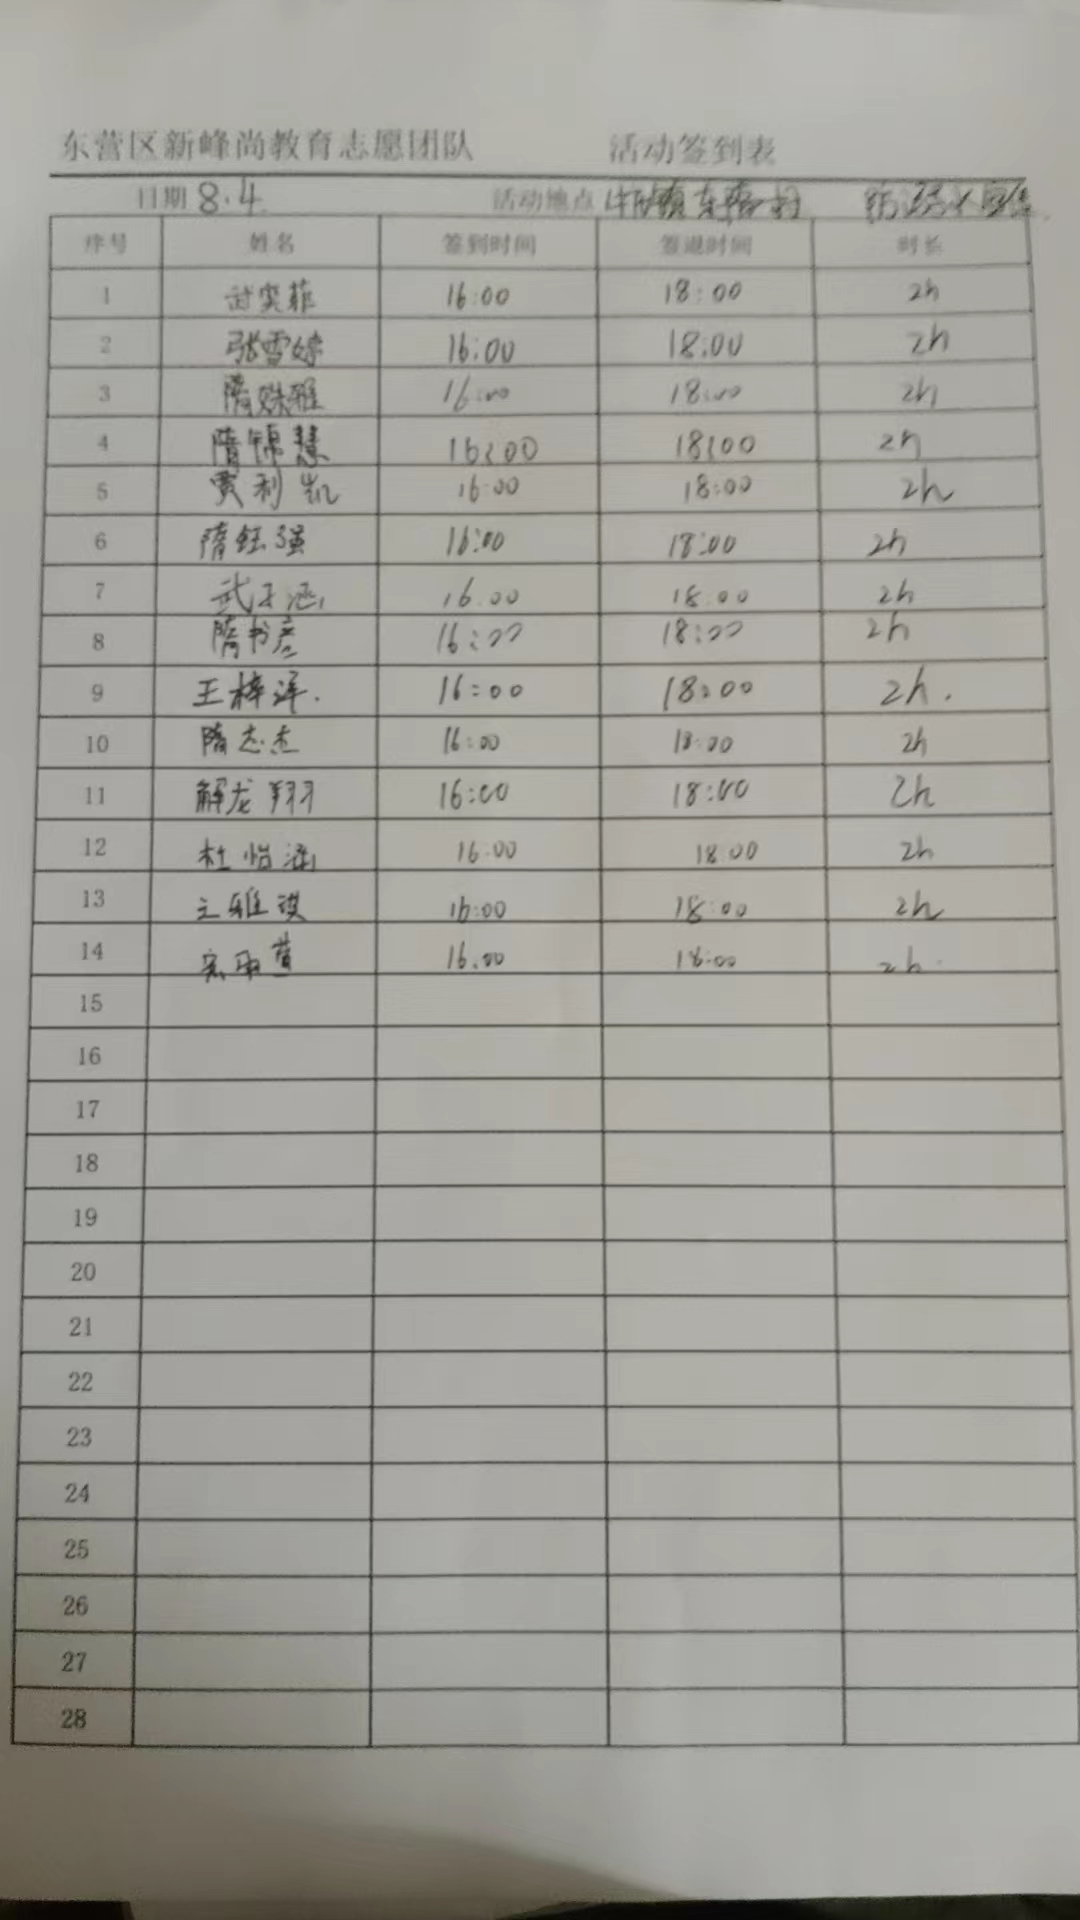 东营区新峰尚教育志愿团队 活动签到表
日期 8.4 活动地点 牛庄镇东隋村
序号 姓名 签到时间 签退时间 时长
1 16:00 18:00 2h
2 张雪婷 16:00 18:00 2h
3 隋姝雅 16:00 18:00 2h
4 隋锦慧 16:00 18:00 2h
5 贾利凯 16:00 18:00 2h
6 隋钰强 16:00 18:00 2h
7 武子涵 16.00 18.00 2h
8 隋书彦 16:00 18:00 2h
9 王梓洋. 16:00 18:00 2h.
10 隋志杰 16:00 18:00 2h
11 解龙翔 16:00 18:00 2h
12 杜怡涵 16:00 18:00 2h
13 王雅祺 16:00 18:00 2h
14 16.00 18:00 2h.
15
16
17
18
19
20
21
22
23
24
25
26
27
28